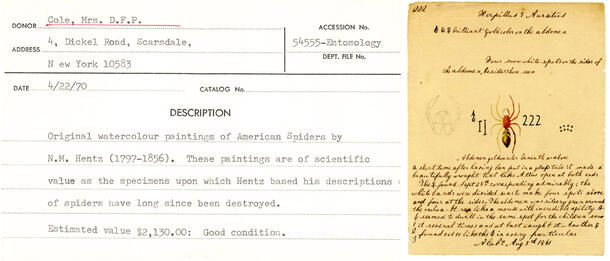 DONOR Cole, Mrs. D.F.P.
ACCESSION No.
ADDRESS 4, Dickel Road, Scarsdale,
54555-Entomology
New York 10583
DEPT. FILE No.
DATE 4/22/70
CATALOG No.
DESCRIPTION
Original watercolour paintings of American Spiders by
N.M. Hentz (1797-1856). These paintings are of scientific
value as the specimens upon which Hentz based his descriptions
of spiders have long since been destroyed.
Estimated value $2,130.00: Good condition.
222
Herpillus ? Auratus
brilliant Gold color on the abdomen
Four snow white spots on the sides of
the abdomen, besides
222
Abdomen gold color beneath as above
a short time after having been put in a glass tube it made a
beautifully wrought that like Attus open at both ends
found Sept 25th corresponding admirably; the
white bands were divided as to make four spots above
and four at the sides. The abdomen was silvery green around
the It ran like a mouse with incredible agility, &
seemed to dwell in the same spot for the children
it several times and at last caught it. Another
found in every particular
Alaba Aug 3d 1841